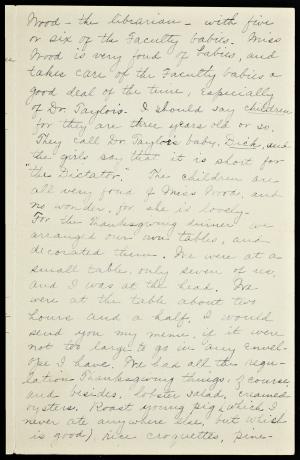 Wood - the librarian - with five
or six of the Faculty babies. Miss
Wood is very fond of babies, and
takes care of the Faculty babies a
good deal of the time, especially
of Dr. Taylor's. I should say children
for they are three years old or so.
They call Dr. Taylor's baby, Dick, and
the girls say that it is short for
"the Dictator." The children are
all very fond of Miss Wood, and
no wonder, for she is lovely.
For the Thanksgiving dinner we
arranged our own tables, and
decorated them. We were at a
small table, only seven of us,
and I was at the head. We
were at the table about two
hours and a half. I would
send you my menu, if it were
not too large to go in any envel-
ope I have. We had all the regu-
lation Thanksgiving things, of course,
and besides, lobster salad, creamed
oysters, Roast young pig (which I
never ate anywhere else, but which
is good), rice croquettes, pine-